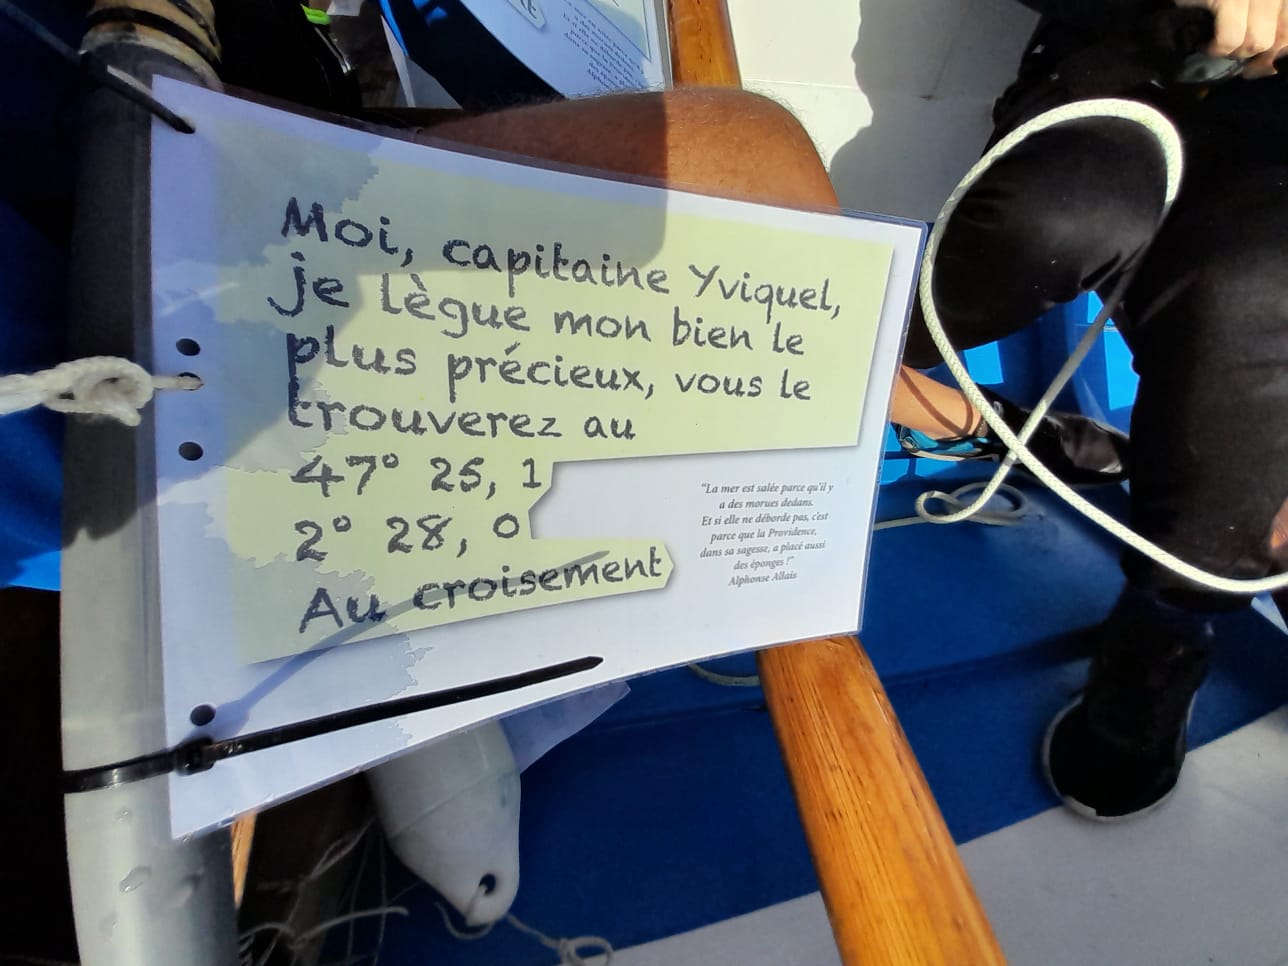 Moi, capitaine Yviquel,
je lègue mon bien le
plus précieux, vous le
trouverez au
47° 25, 1
2° 28, 0
Au croisement
"La mer est salée parce qu'il y
a des morues dedans.
Et si elle ne déborde pas, c'est
parce que la Providence,
dans sa sagesse, a placé aussi
des éponges !"
Alphonse Allais